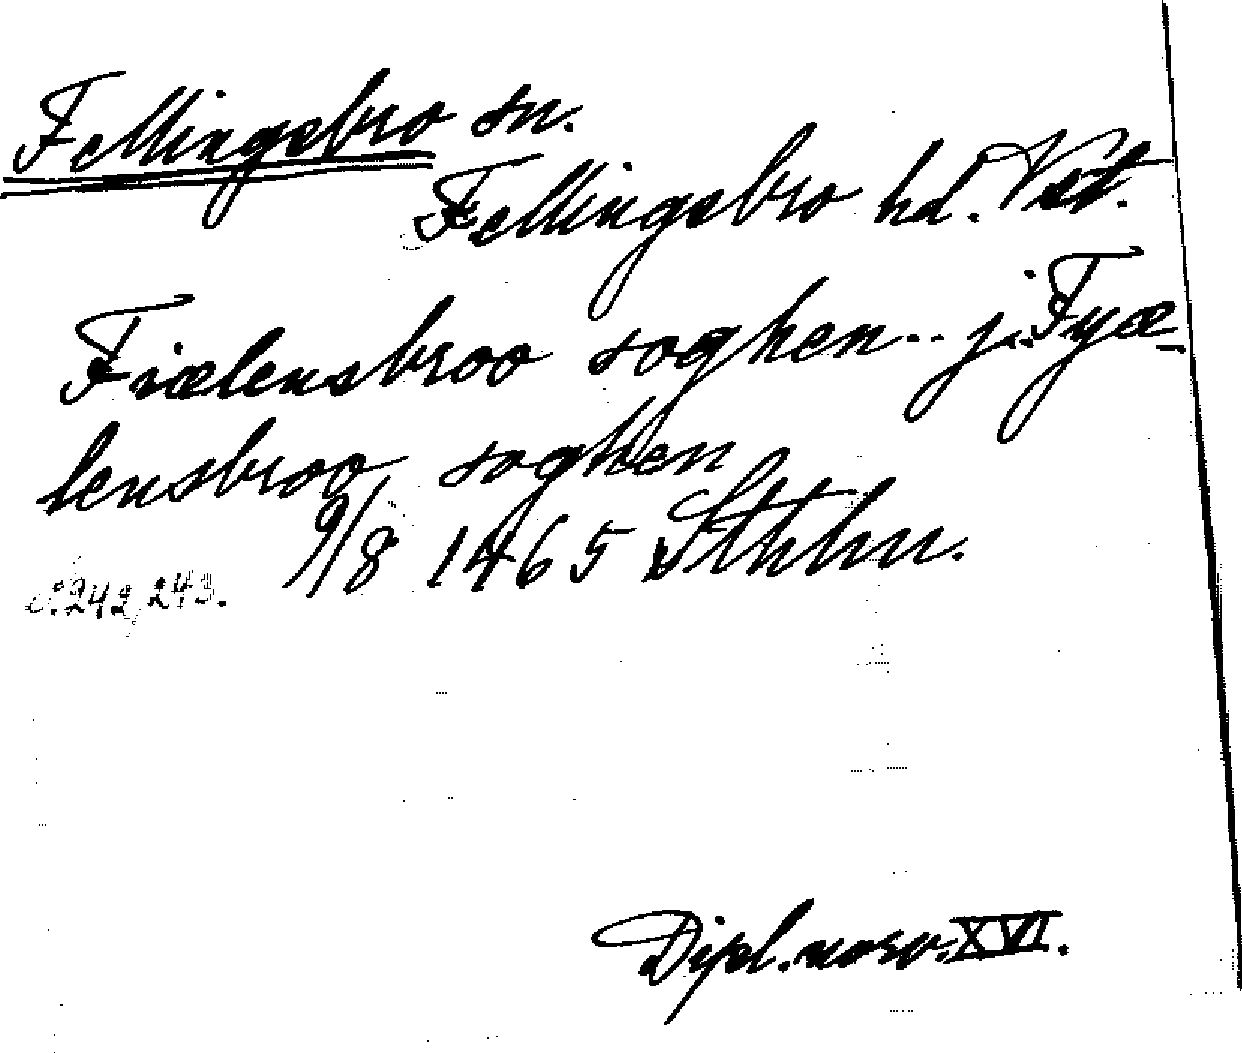 Fellingsbro sn.
Fellingsbro hd. Vst.
Fiælensbroo soghen.. j. Fyæ-
lensbroo soghen
9/8 1465 Sthlm.
s. 242, 243.
Dipl. norv. XVI.